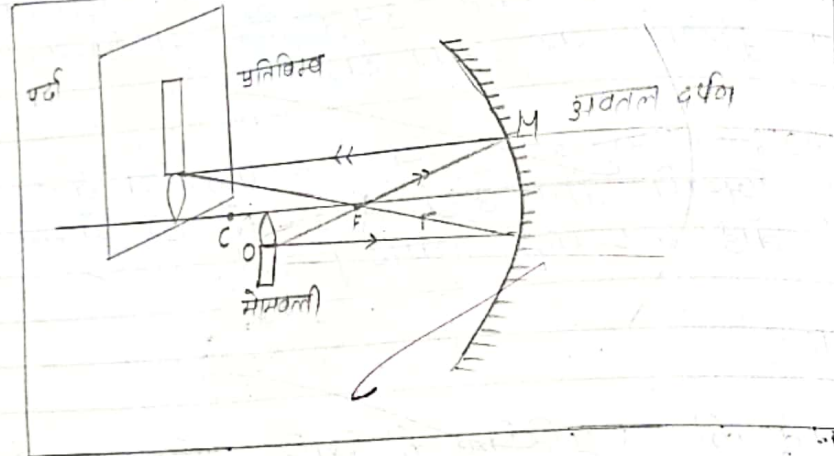 पर्दा
प्रतिबिम्ब
M
अवतल दर्पण
C
F
r
O
मोमबत्ती